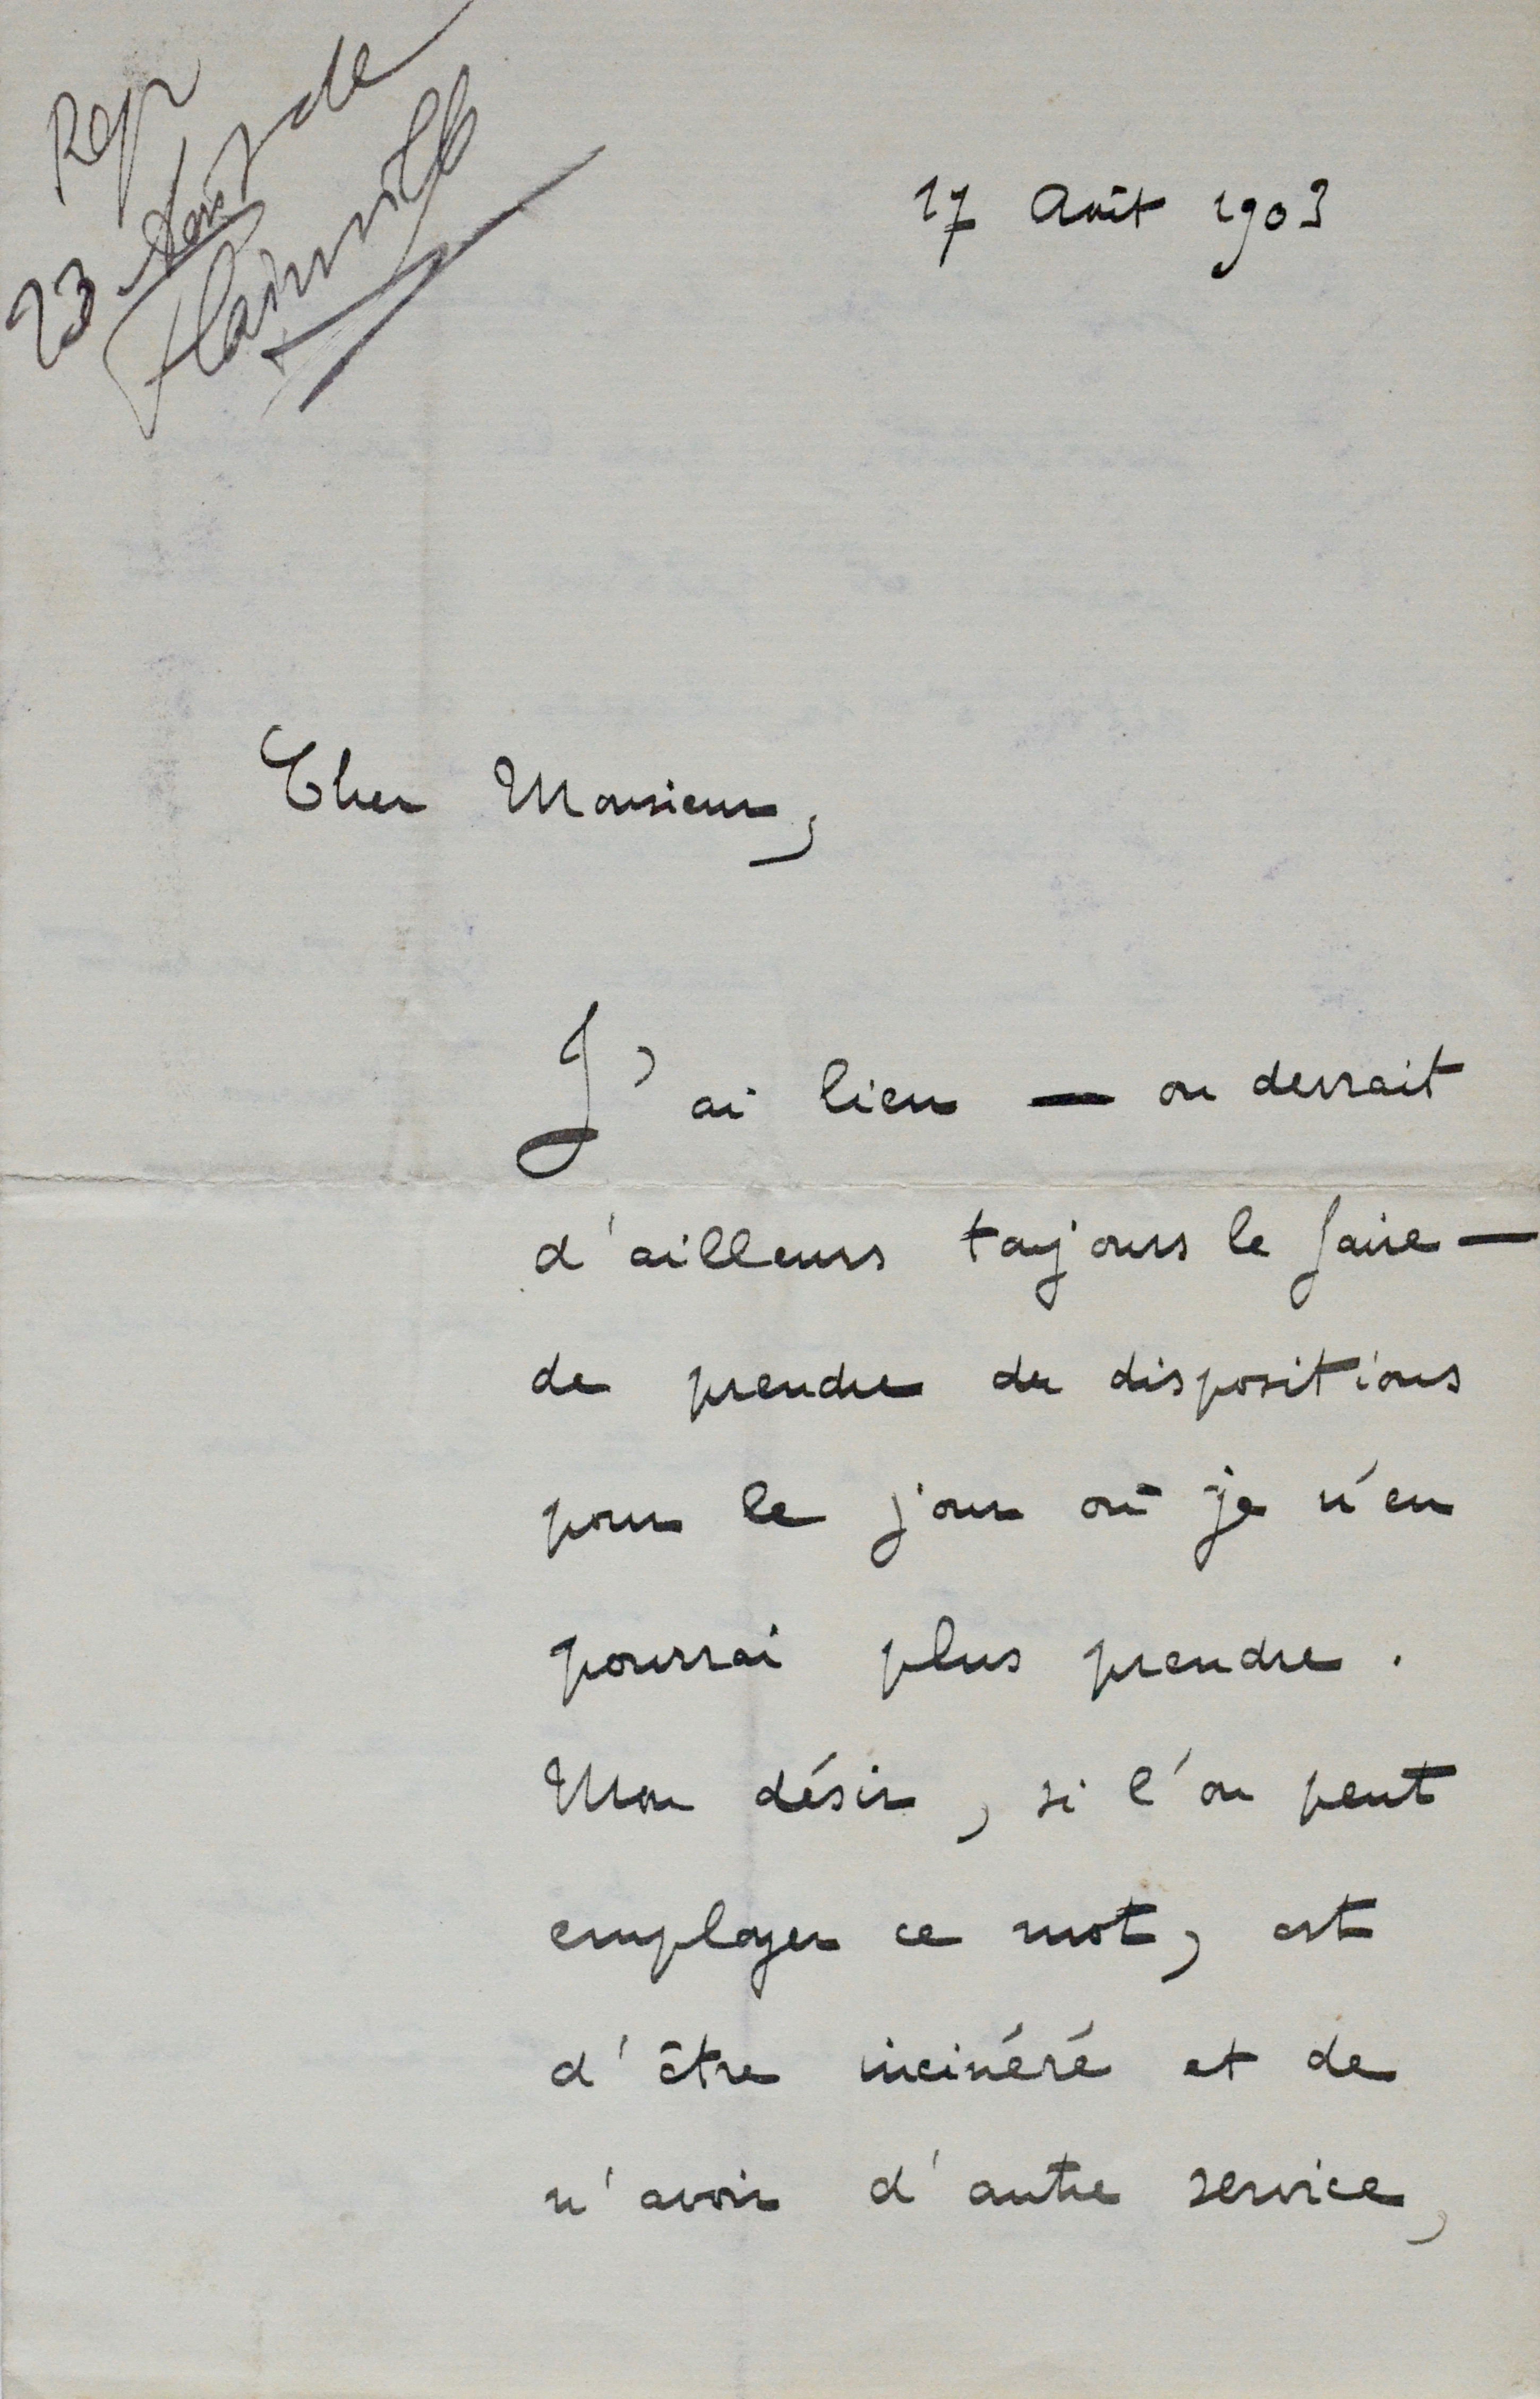 Rep
23 Août de
Flainville
17 Août 1903
Cher Monsieur,
J'ai lieu — on devrait
d'ailleurs toujours le faire —
de prendre des dispositions
pour le jour où je n'en
pourrai plus prendre.
Mon désir, si l'on peut
employer ce mot, est
d'être incinéré et de
n'avoir d'autre service,